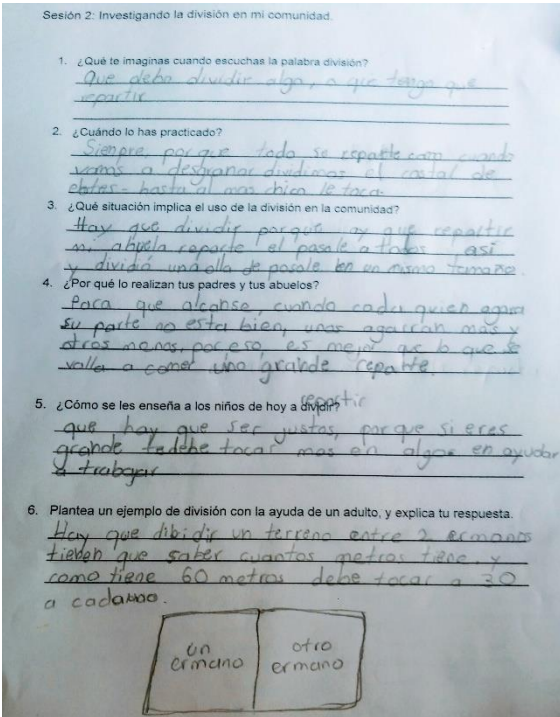 Sesión 2: Investigando la división en mi comunidad.
1. ¿Qué te imaginas cuando escuchas la palabra división?
Que debo dividir algo, o que tengo que
repartir
2. ¿Cuándo lo has practicado?
Sienpre, porque todo se repatte com cuando
vamos a desgranar dividimos el costal de
elotes - hasta al mas chico le toca.
3. ¿Qué situación implica el uso de la división en la comunidad?
Hay que dividir porque ay que repartir
mi abuela reparte el posole a todos así
y dividió una olla de posole en un mismo tamaño.
4. ¿Por qué lo realizan tus padres y tus abuelos?
Para que alcanse cuando cada quien agarra
su parte no esta bien, unos agarran mas y
otros menos, por eso es mejor que lo que se
valla a comer uno grande reparte.
5. ¿Cómo se les enseña a los niños de hoy a dividir? repartir
que hay que ser justos, por que si eres
grande te debe tocar mas en algo en ayudar
a trabajar
6. Plantea un ejemplo de división con la ayuda de un adulto, y explica tu respuesta.
Hay que dibidir un terreno entre 2 ermanos
tieben que saber cuantos metros tiene, y
como tiene 60 metros debe tocar a 30
a cada uno.
un
ermano
otro
ermano